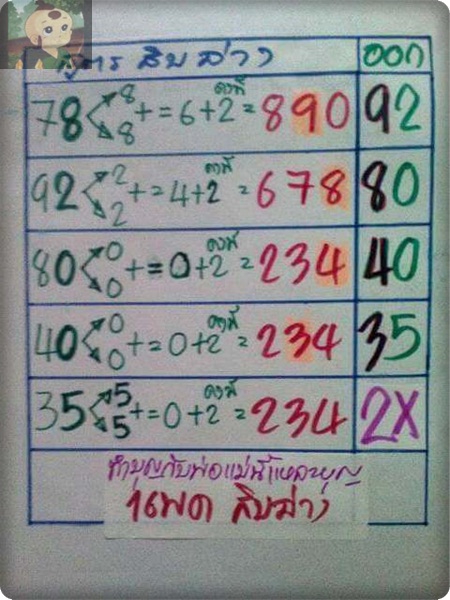 สูตร สิบล่าง ออก
78 8 8 + = 6 + 2 คงที่ = 890 92
92 2 2 + = 4 + 2 คงที่ = 678 80
80 0 0 + = 0 + 2 คงที่ = 234 40
40 0 0 + = 0 + 2 คงที่ = 234 35
35 5 5 + = 0 + 2 คงที่ = 234 2X
ทำบุญกับพ่อแม่นี้แหละบุญ
สิบล่าง